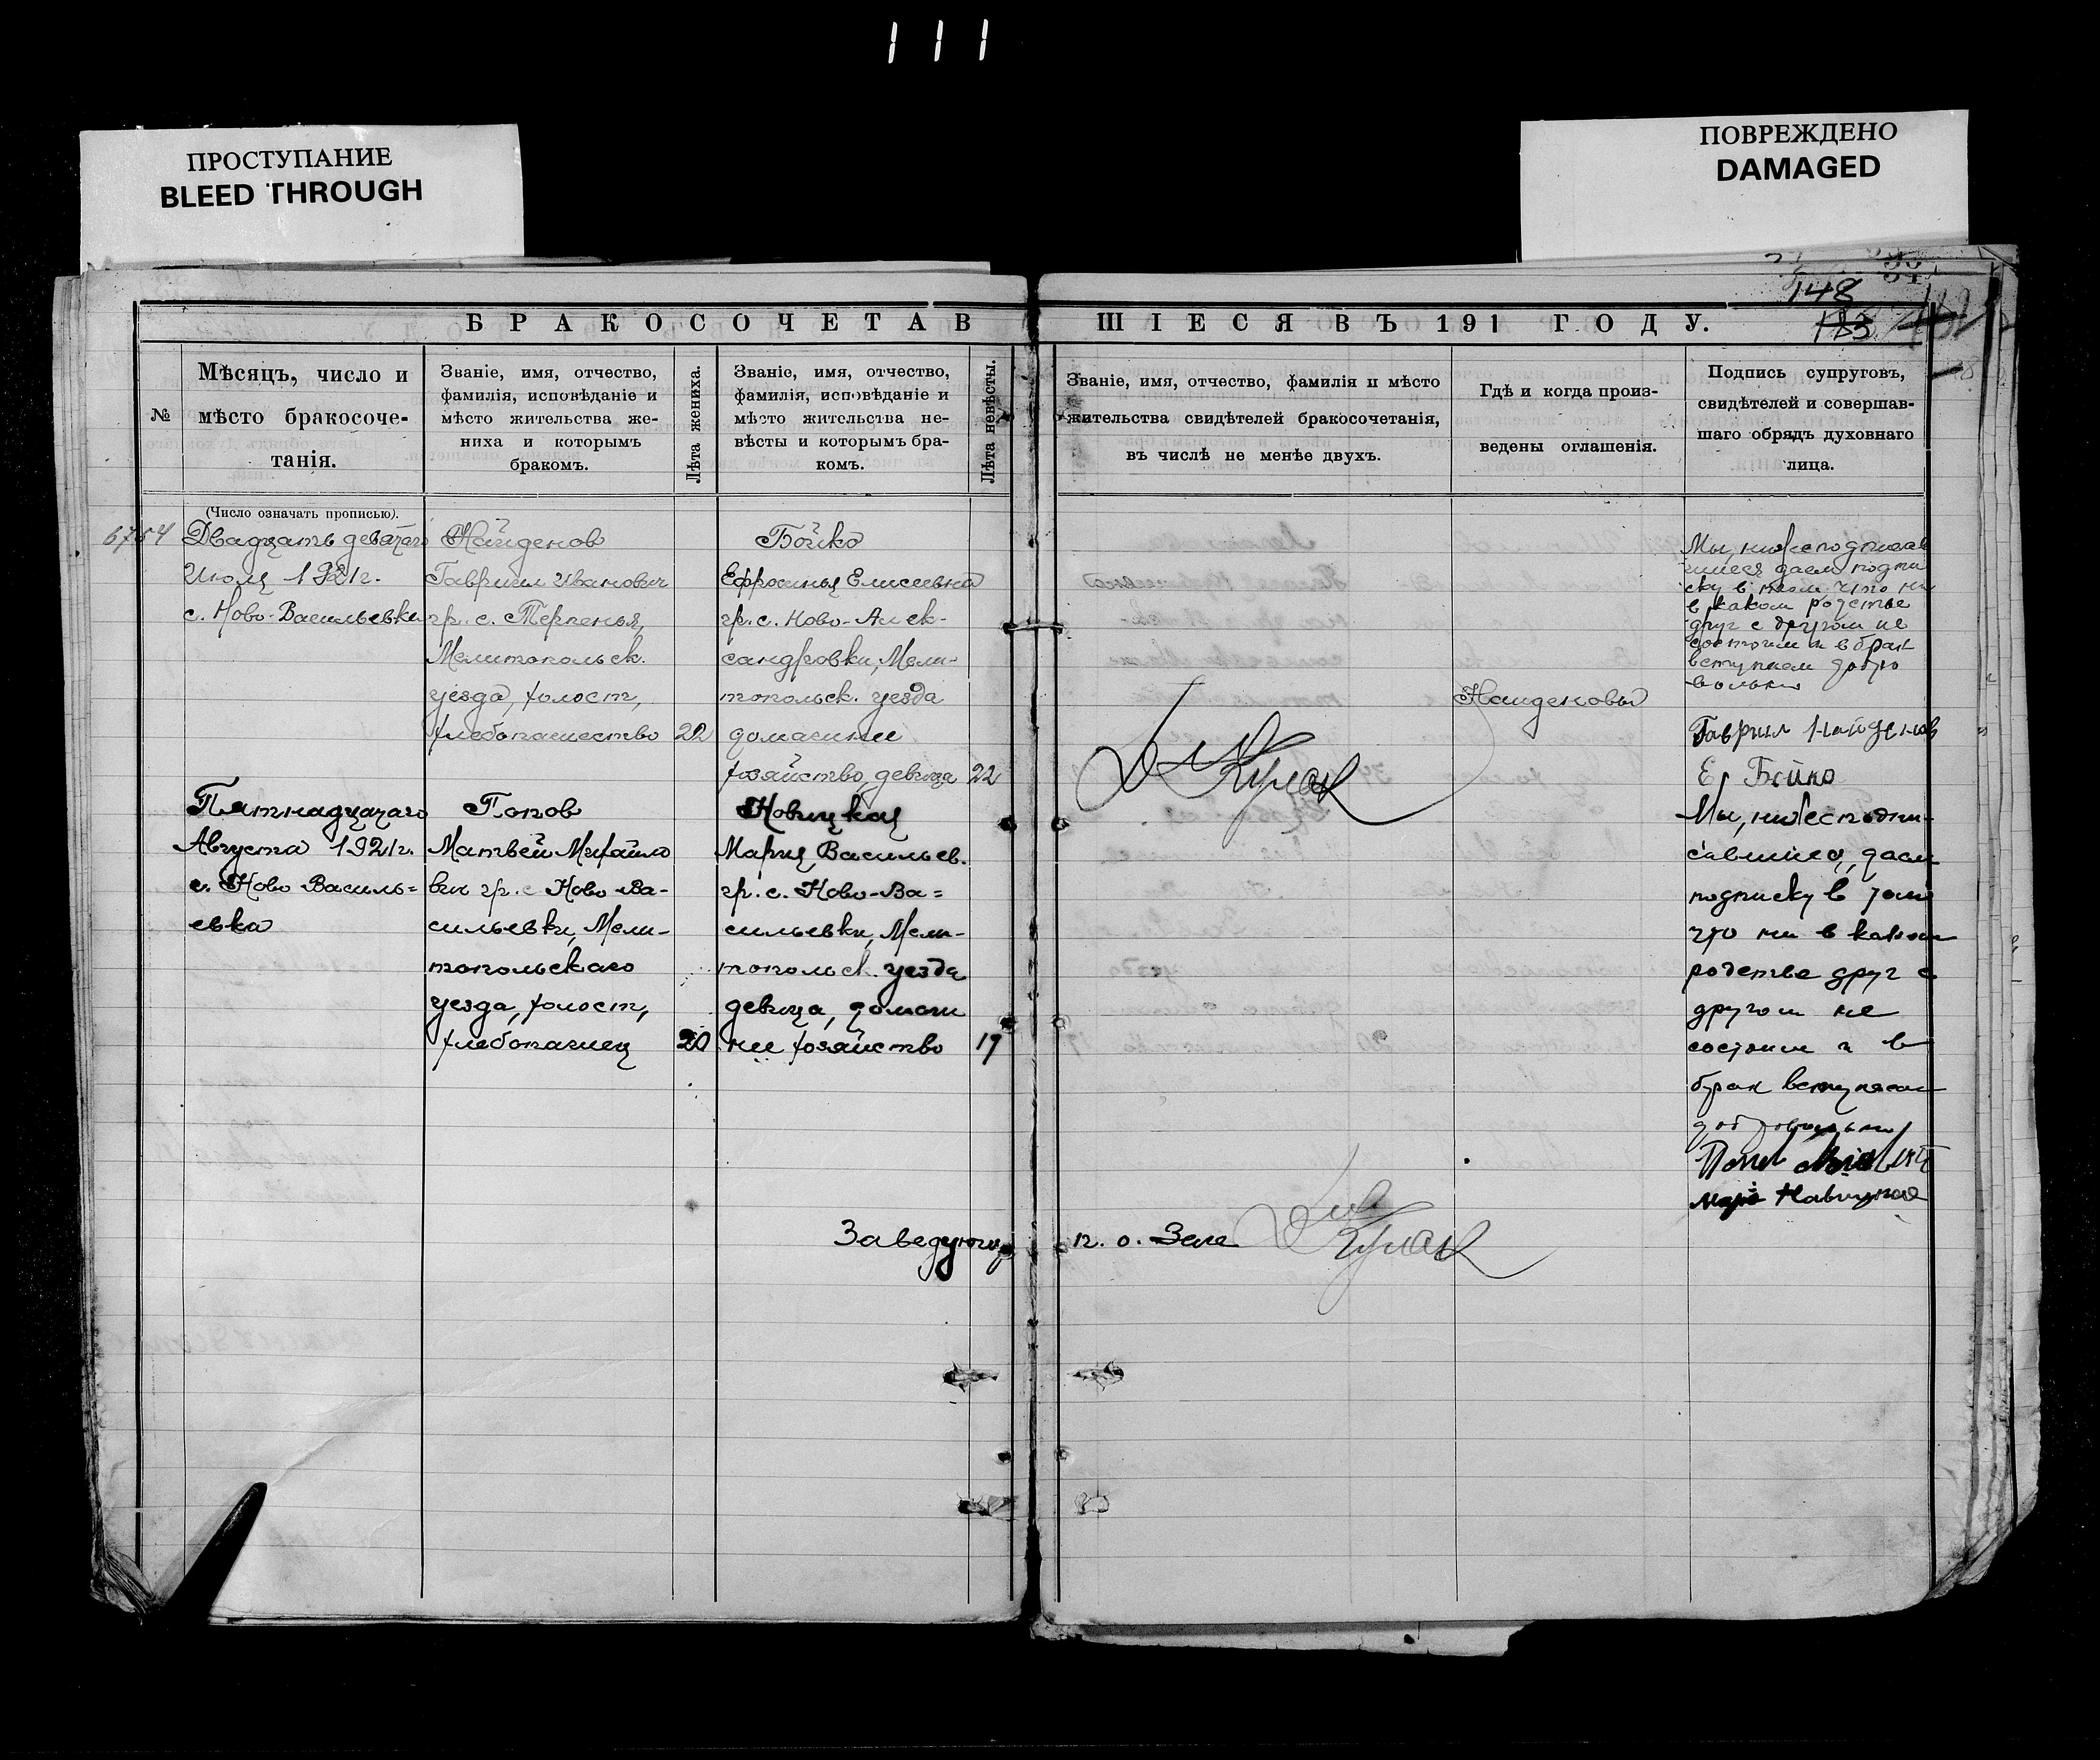 111
ПРОСТУПАНИЕ
BLEED THROUGH
ПОВРЕЖДЕНО
DAMAGED
148
БРАКОСОЧЕТАВ
ШІЕСЯ ВЪ 191 ГОДУ.
№
Мѣсяцъ, число и
мѣсто бракосоче-
танія.
Званіе, имя, отчество,
фамилія, исповѣданіе и
мѣсто жительства же-
ниха и которымъ
бракомъ.
Лѣта жениха.
Званіе, имя, отчество,
фамилія, исповѣданіе и
мѣсто жительства не-
вѣсты и которымъ бра-
комъ.
Лѣта невѣсты.
Званіе, имя, отчество, фамилія и мѣсто
жительства свидѣтелей бракосочетанія,
въ числѣ не менѣе двухъ.
Гдѣ и когда произ-
ведены оглашенія.
Подпись супруговъ,
свидѣтелей и совершав-
шаго обрядъ духовнаго
лица.
(Число означать прописью).
Двадцать девятаго
Июля 1921г.
с. Ново-Васильевка
Найденов
Гавриил Иванович
гр. с. Терпенья,
Мелитопольск.
уезда, холост,
хлебопашество 22
Бойко
Ефросинья Елисеевна
гр. с. Ново-Алек-
сандровки, Мели-
топольск. уезда
домашнее
хозяйство, девица 22
Найденовы
Мы, нижеподписав
шиеся даем подпи
ску в том что ни
в каком родстве
друг с другом не
состоим и в брак
вступаем добро
вольно
Гаврил Найденов
Е. Бойко
Пятнадцатаго
Августа 1921г.
с. Ново Василь=
евка
Попов
Матвей Михайло
вич гр. с Ново-Ва-
сильевки, Мели-
топольскаго
уезда, холост,
хлебопашец 20
Новицкая
Мария Васильев.
гр. с. Ново-Ва=
сильевки, Мели-
топольск. уезда
девица, домаш
нее хозяйство 19
Мы, нижеподпи-
савшиеся, даем
подписку в том
что ни в каком
родстве друг с
другом не
состоим и в
брак вступаем
добровольно
Попов Матвей
Мария Новицкая
Заведующ. п. о. Загс
Кулак